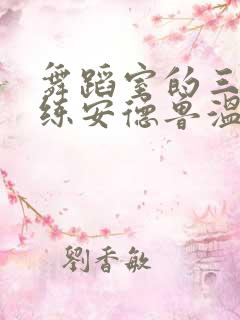 舞蹈室的三
练安德鲁温
劉香敏